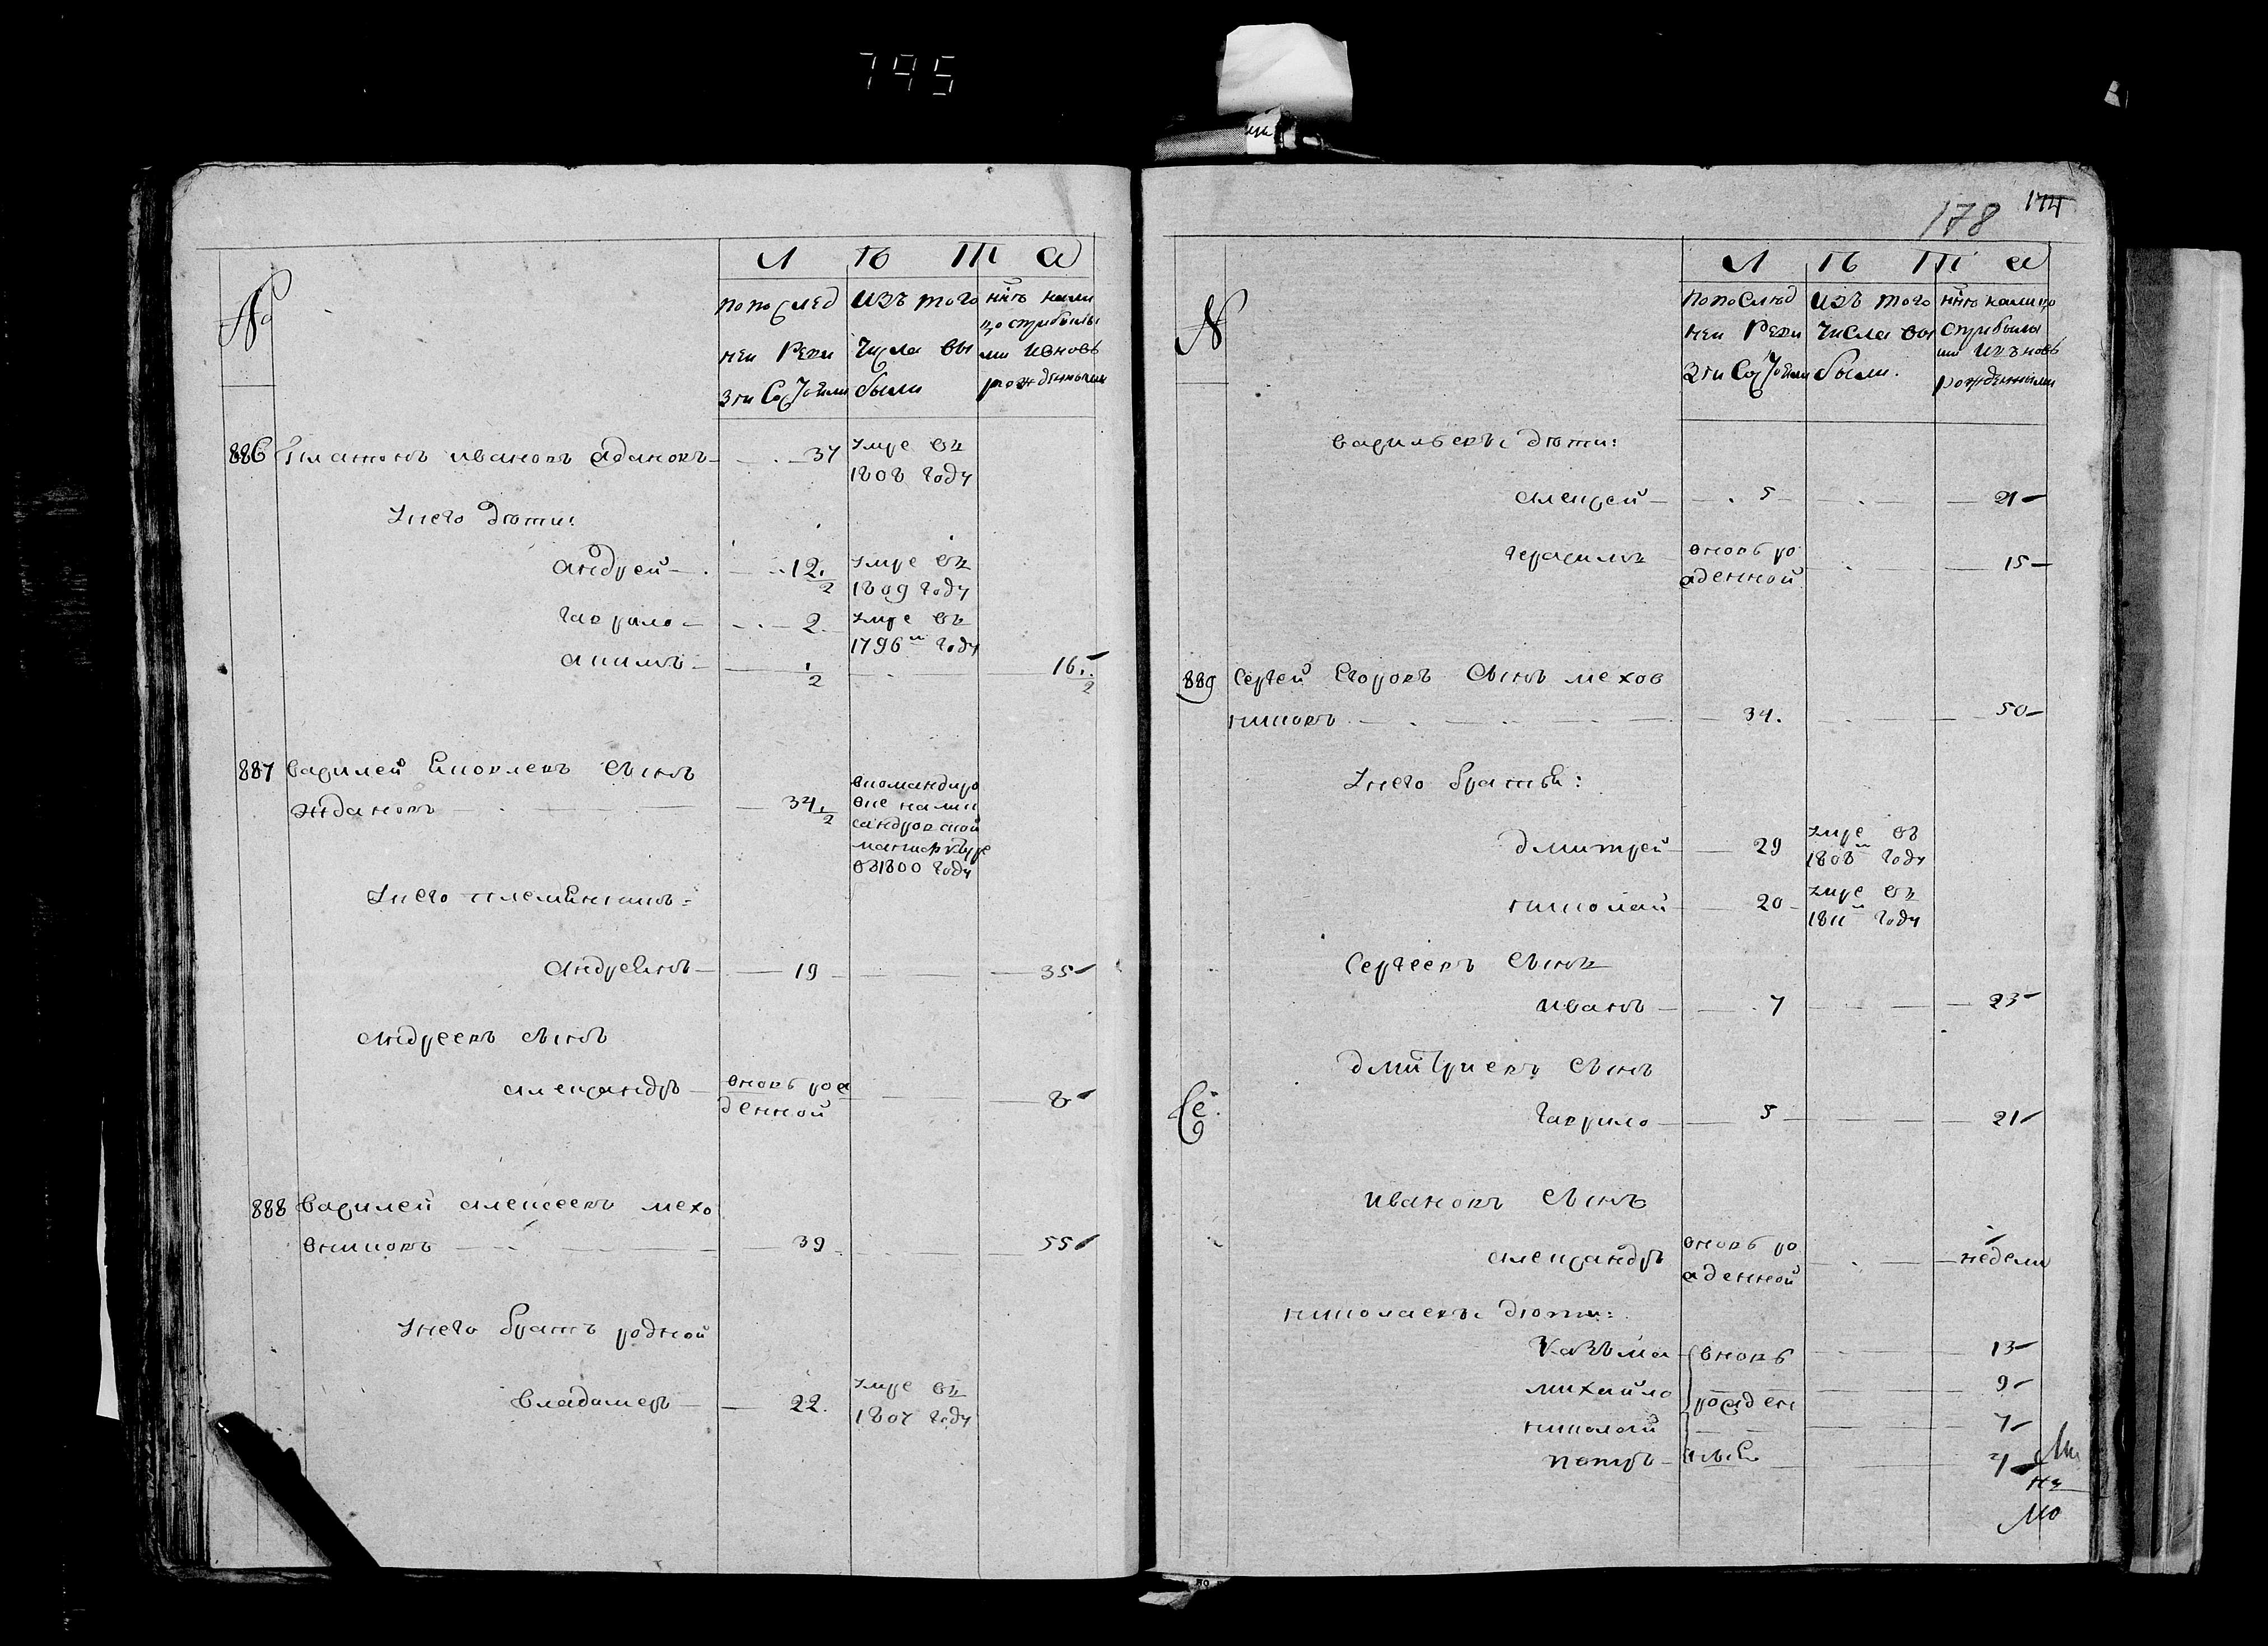 795
178 174
№
Л Ѣ Т А
По послед
ней Реви
зіи Состояли
изъ того
числа вы
были
нынѣ нали
цо съ прибылы
ми и вновь
рожденными
886 Платонъ Ивановъ Ждановъ 37 умре въ
1808 году
у него дѣти:
Андрей 12 1/2 умре въ
1809 году
Гаврило 2 умре въ
1796м году
Акимъ 1/2 16 1/2
887 Василей Яковлевъ сынъ
Ждановъ 34 1/2
в командиро
вке на Алек
сандровской
мануфактуре
въ 1800 году
у него племянникъ:
Андреянъ 19 35
Андреевъ сынъ
Александръ вновь рож
денной 8
888 Василей Алексеевъ Мехо
вниковъ 39 55
у него братъ родной
Владимеръ 22 умре въ
1807 году
№
Л Ѣ Т А
По послѣд
ней Реви
зіи Состояли
изъ того
числа вы
были.
нынѣ налицо
съ прибылы
ми и вновь
рожденными
Васильевы дѣти:
Алексей 5 21
Герасимъ вновь ро
жденной 15
889 Сергей Егоровъ сынъ Мехов
никовъ 34 50
у него братья:
Дмитрей 29 умре въ
1808м году
Николай 20 умре въ
1811м году
Сергеевъ сынъ
Иванъ 7 23
Дмитриевъ сынъ
Гаврило 5 21
Ивановъ сынъ
Александръ вновь ро
жденной недели
Николаевы дѣти:
Казьма вновь 13
Михайло рожден 9
Николай 7
Петръ ныя 4